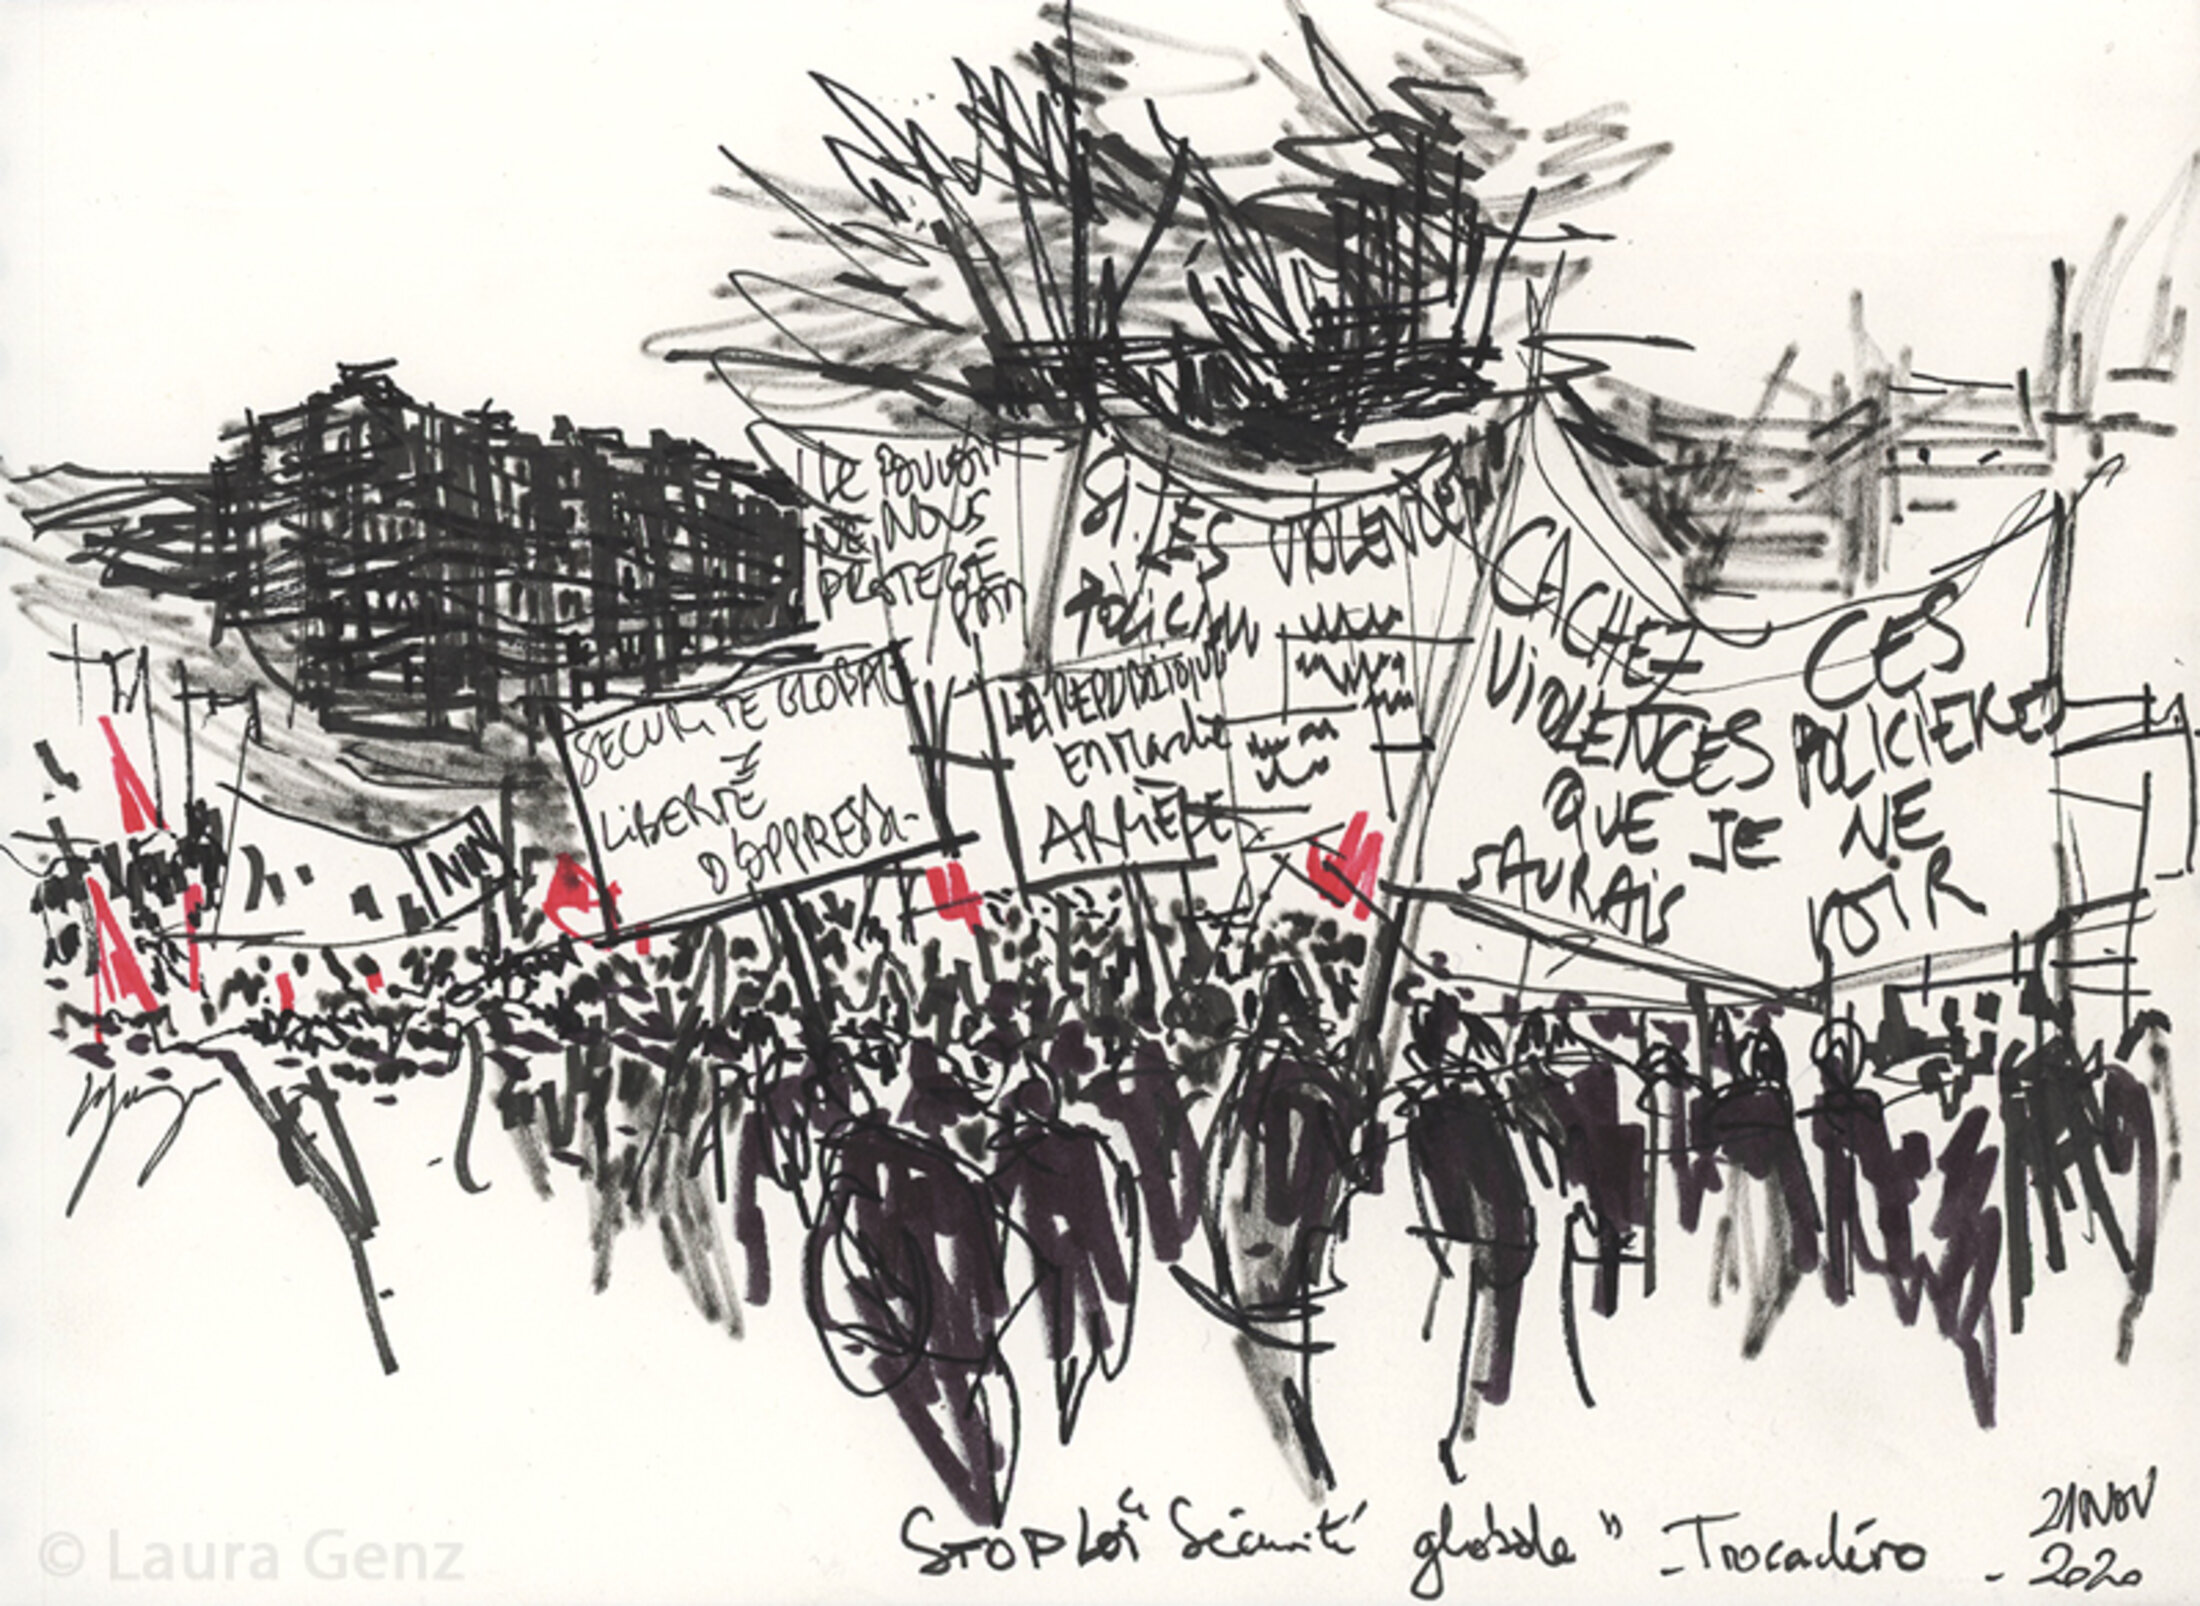 LE POUVOIR
NE NOUS
PROTEGE
PAS
SI LES VIOLENCES
CACHEZ CES
VIOLENCES POLICIERES
QUE JE NE
SAURAIS VOIR
SECURITE GLOBALE
=
LIBERTÉ
D'OPPRESSI-
LA REPUBLIQUE
EN Marche
ARRIÈRE
NON
STOP LOI "Sécurité globale" - Trocadéro - 21 NOV
2020
© Laura Genz